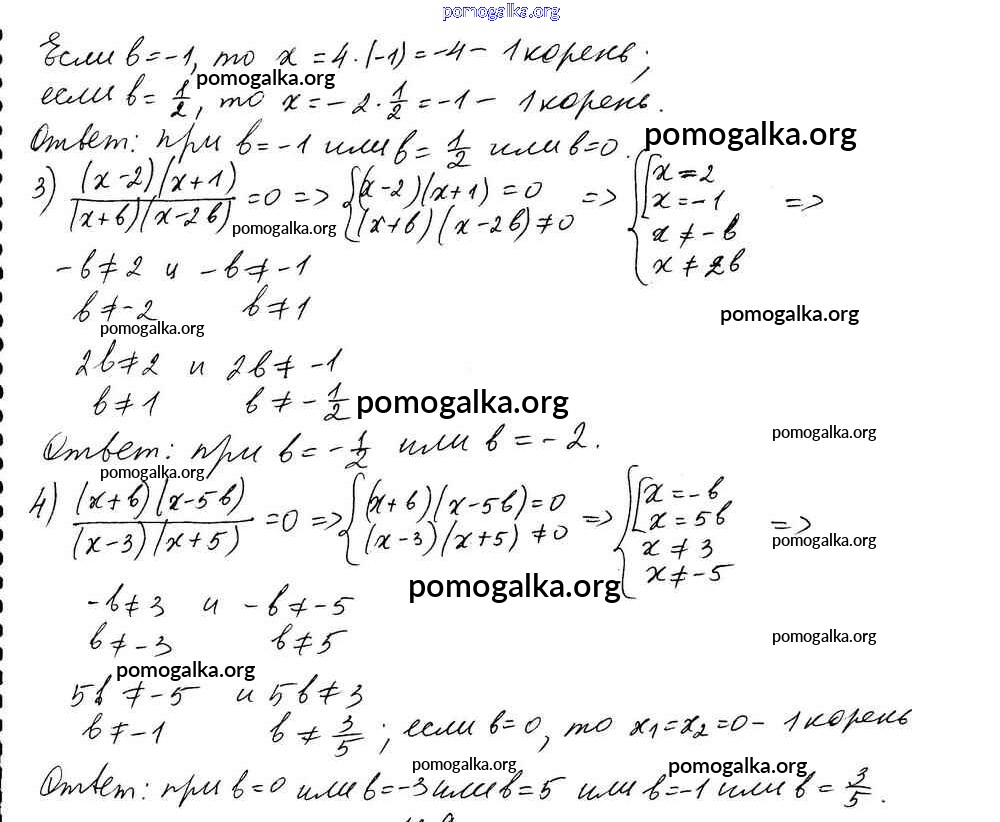 pomogalka.org
Если b = -1, то x = 4·(-1) = -4 - 1 корень;
pomogalka.org
если b = 1/2, то x = -2·1/2 = -1 - 1 корень.
Ответ: при b = -1 или b = 1/2 или b = 0.
pomogalka.org
3) (x-2)(x+1)/(x+b)(x-2b) = 0 => {(x-2)(x+1) = 0 (x+b)(x-2b) ≠ 0 => {[x = 2 x = -1 x ≠ -b x ≠ 2b =>
pomogalka.org
-b ≠ 2 и -b ≠ -1
b ≠ -2 b ≠ 1
pomogalka.org
pomogalka.org
2b ≠ 2 и 2b ≠ -1
b ≠ 1 b ≠ -1/2
pomogalka.org
pomogalka.org
Ответ: при b = -1/2 или b = -2.
pomogalka.org
4) (x+b)(x-5b)/(x-3)(x+5) = 0 => {(x+b)(x-5b) = 0 (x-3)(x+5) ≠ 0 => {[x = -b x = 5b x ≠ 3 x ≠ -5 =>
pomogalka.org
pomogalka.org
-b ≠ 3 и -b ≠ -5
b ≠ -3 b ≠ 5
pomogalka.org
pomogalka.org
5b ≠ -5 и 5b ≠ 3
b ≠ -1 b ≠ 3/5; если b = 0, то x₁ = x₂ = 0 - 1 корень
pomogalka.org
pomogalka.org
Ответ: при b = 0 или b = -3 или b = 5 или b = -1 или b = 3/5.